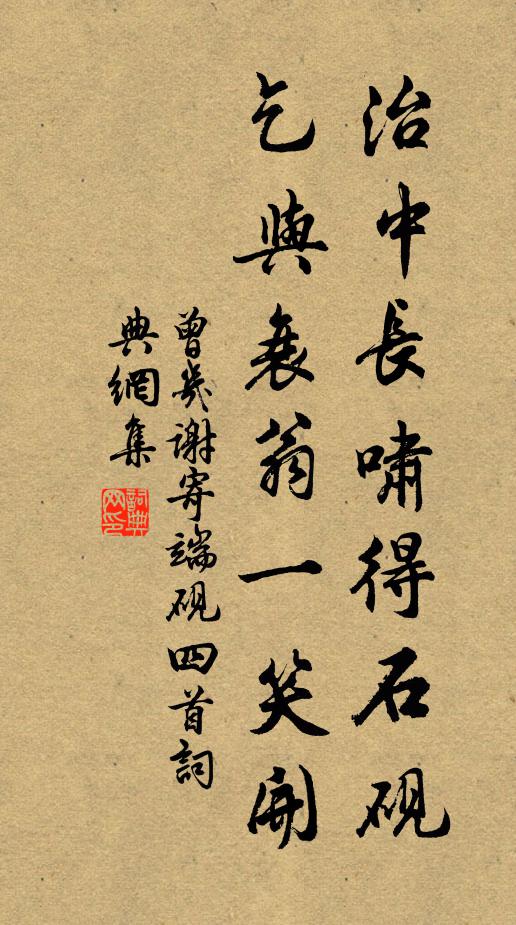 治中長嘯得石硯
乞與衰翁一笑開
曾幾謝寄端硯四首詞
典網集
詞典網印